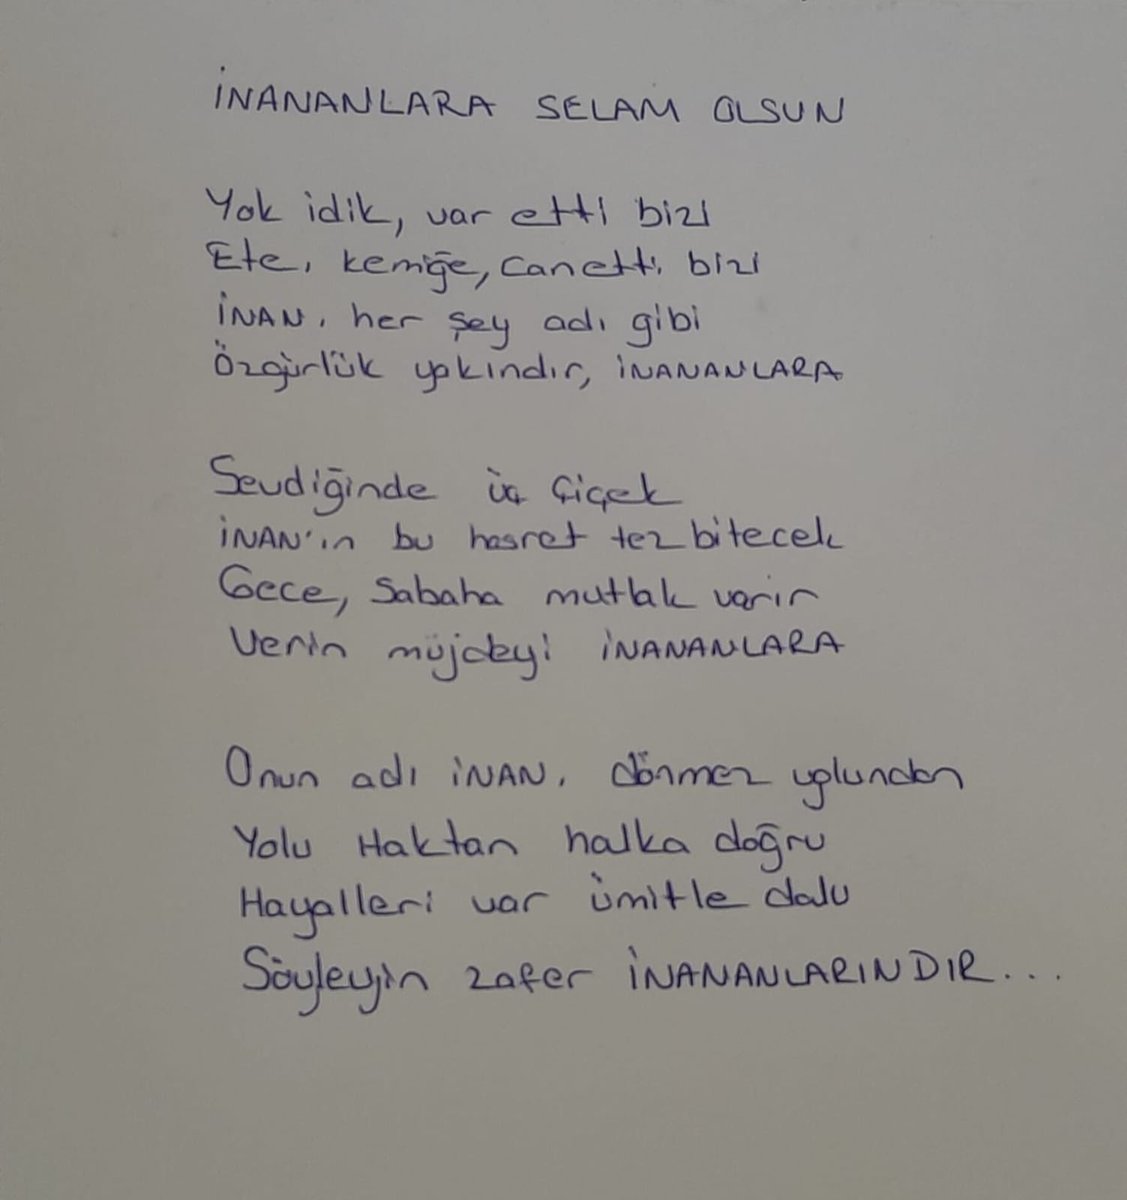 İNANANLARA SELAM OLSUN
Yok idik, var etti bizi
Ete, kemiğe, can etti bizi
İNAN, her şey adı gibi
Özgürlük yakındır, İNANANLARA
Sevdiğinde üç çiçek
İNAN'ın bu hasret tez bitecek
Gece, Sabaha mutlak varır
Verin müjdeyi İNANANLARA
Onun adı İNAN, dönmez yolundan
Yolu Haktan halka doğru
Hayalleri var ümitle dolu
Söyleyin zafer İNANANLARINDIR...